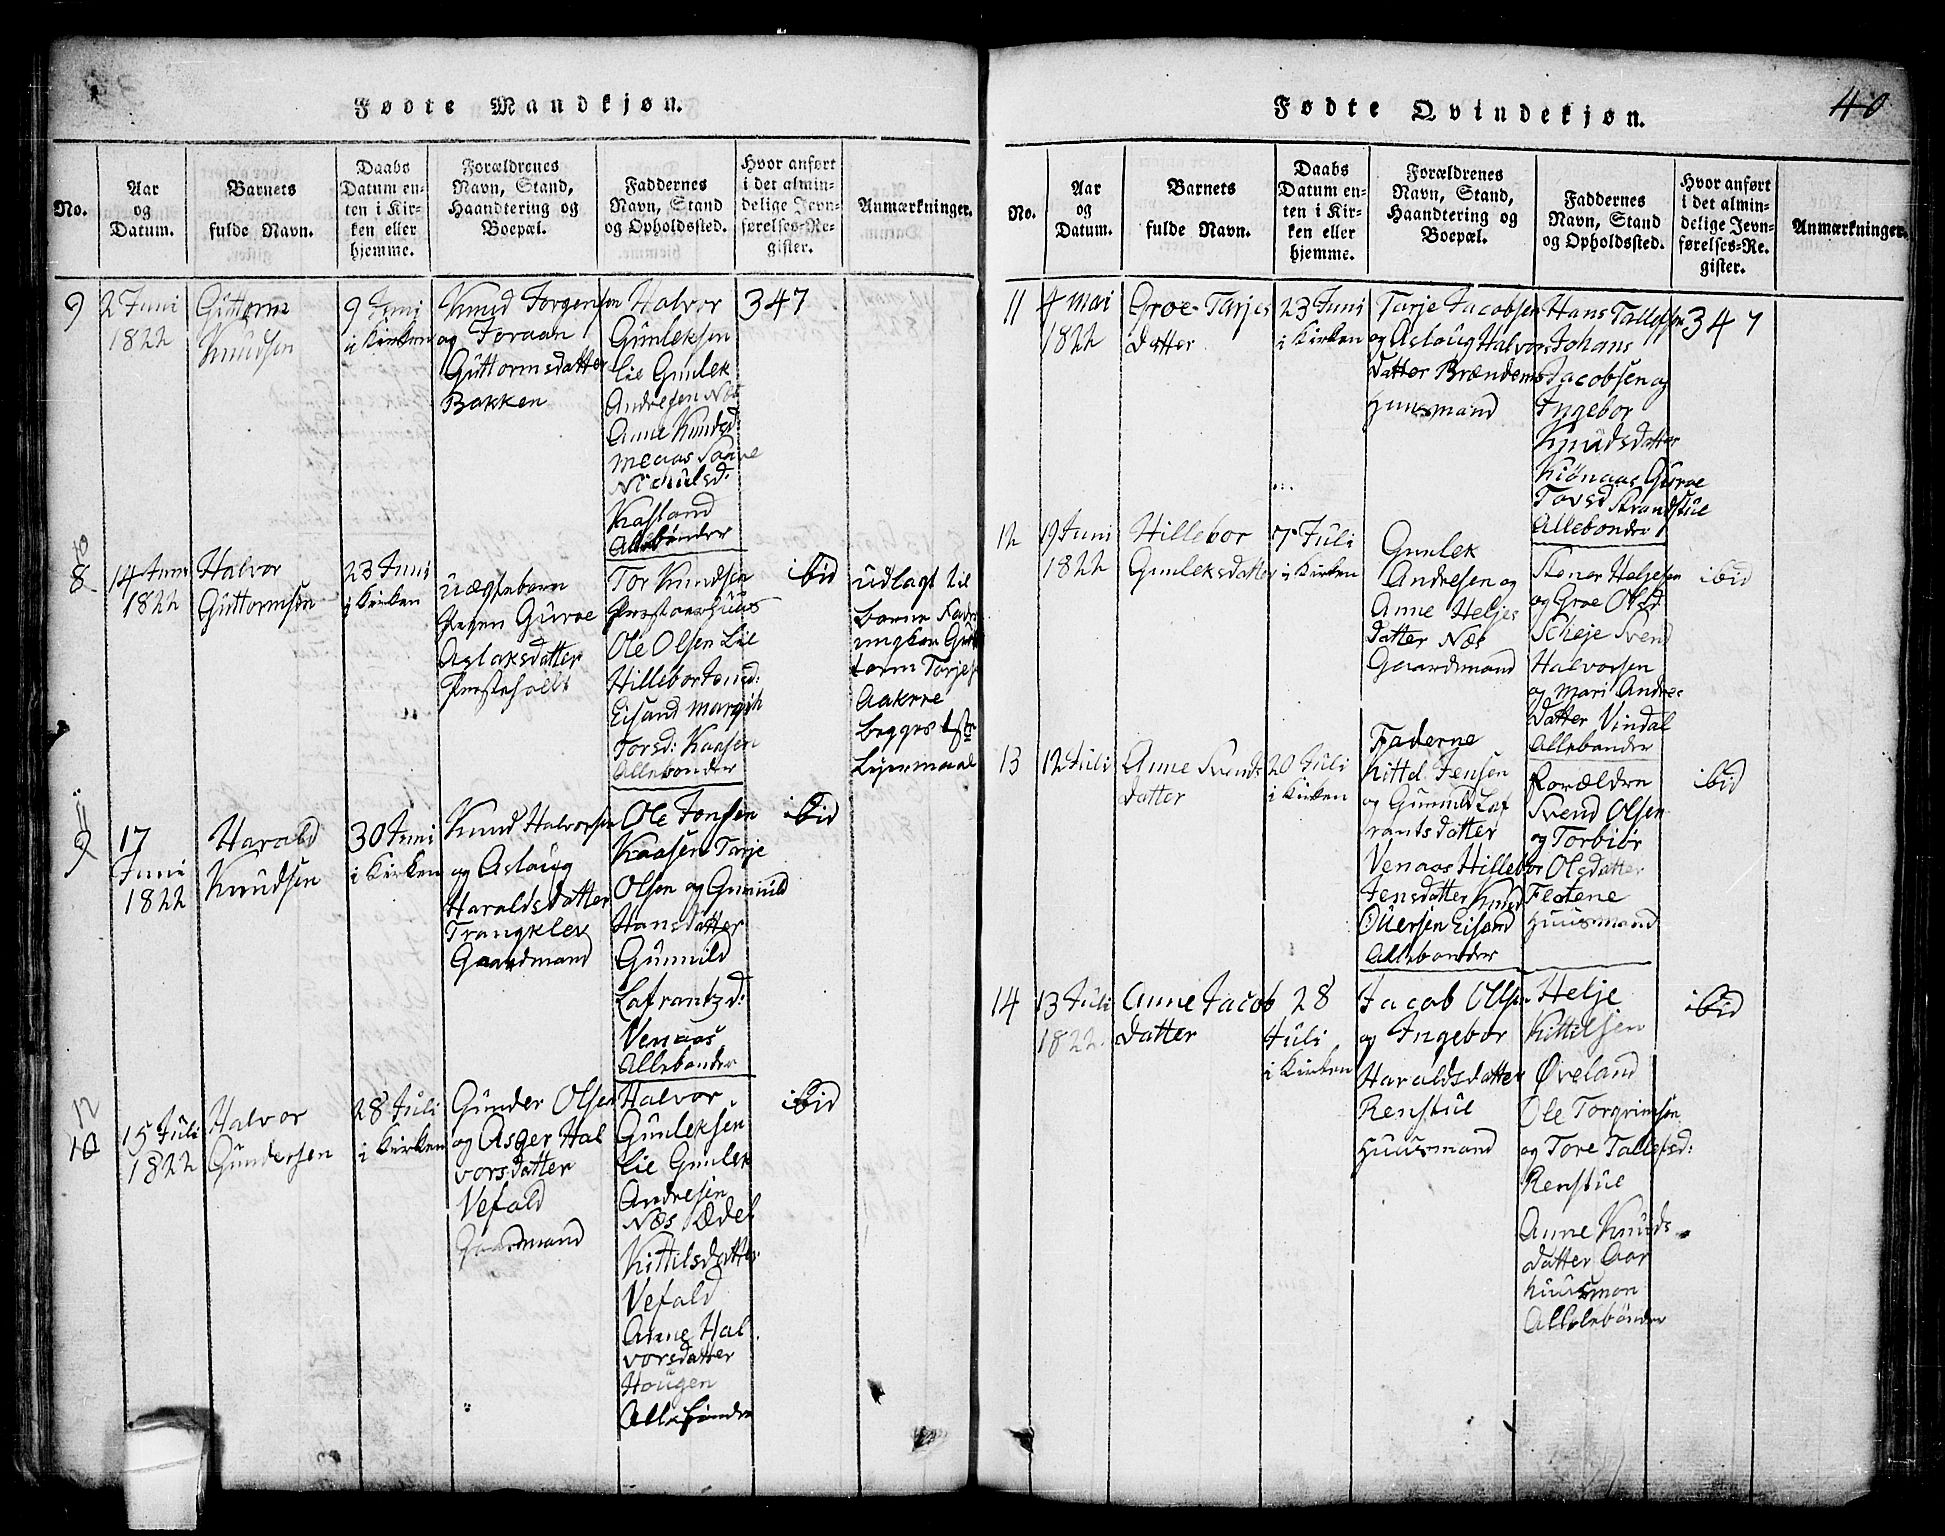 Fødte Mandkjøn.
No.
Aar
og
Datum.
Barnets
fulde Navn.
Daabs
Datum en-
ten i Kir-
ken eller
hjemme.
Forældrenes
Navn, Stand,
Haandtering og
Boepæl.
Faddernes
Navn, Stand
og Opholdssted.
Hvor anført
i det almin-
delige Jevn-
førelses-Re-
gister.
Anmærkninger.
9
2 Juni
1822
Guttorm
Knudsen
9 Juni
i Kirken
Knud Jorgensen
og Joraan
Guttormsdatter
Bakken
Halvor
Gunleksen
Lie Gunlek
Andresen Næs
Anne Knudsd:
Meaas
Nichulsd:
Kasland
Allebønder
347
10
8
14 Juni
1822
Halvor
Guttormsen
23 Juni
i Kirken
uægtebarn
Pigen Guroe
Aslaksdatter
Præsteholt
Tor Knudsen
Ole Olsen Lie
Hillebor
Eisand Margith
Torsd: Kaasen
Allebonder
ibid
udlagt til
barne Fader
ungkar Gut
torm Tarjes
Aakrre
begges 1ste
Lejermaal
11
9
17
Juni
1822
Harald
Knudsen
30 Juni
i Kirken
Knud Halvorsen
og Aslaug
Haraldsdatter
Trangklev
Gaardmand
Ole Jonsen
Kaasen Tarje
Olsen og Gunnild
Hansdatter
Gunnild
Lafrantzd:
Venaas
Allebonder
ibid
12
10
15 Juli
1822
Halvor
Gundersen
28 Juli
i Kirken
Gunder Olsen
og Asger Hal
vorsdatter
Vefald
Gaardmand
Halvor
Gunleksen
Lie Gunlek
Andresen
Næs Ædel
Kittilsdatter
Vefald
Anne Hal
vorsdatter
Hougen
Allebønder
ibid
40
Fødte Qvindekjøn.
No.
Aar
og
Datum.
Barnets
fulde Navn.
Daabs
Datum en-
ten i Kir-
ken eller
hjemme.
Forældrenes
Navn, Stand,
Haandtering og
Boepæl.
Faddernes
Navn, Stand
og Opholdssted.
Hvor anført
i det almin-
delige Jevn-
førelses-Re-
gister.
Anmærkninger.
11
4 Mai
1822
Groe Tarjes
datter
23 Juni
i Kirken
Tarje Jacobsen
og Aslaug Halvors
datter Brændemo
Huusmand
Hans Tallefsen
Johans
Jacobsen og
Ingebor
Knudsdatter
Kiønaas Guroe
Tovsd Strandstul
Allebonder
347
12
19 Juni
1822
Hillebor
Gunleksdatter
7 Juli
i Kirken
Gunlek
Andresen og
Anne Heljes
datter Næs
Gaardmand
Stener Heljesen
og Groe Olsd
Scheje Svend
Halvorsen
og Mari Andre
datter Vindal
Allebonder
ibid
13
12 Juli
Anne Svends
datter
20 Juli
i Kirken
Faderne
Kittel Jensen
og Gunnild Laf
rants datter
Venaas Hillebor
Jensdatter Knud
Ollersen Eisand
Allebonder
Forældre
Svend Olsen
og Torbiør
Olsdatter
Flotene
Huusmand
ibid
14
13 Juli
1822
Anne Jacob
datter
28
Juli
i Kirken
Jacob Olsen
og Ingebor
Haraldsdatter
Renstul
Huusmand
Helje
Kittilsen
Øveland
Ole Torgrimsen
og Tore Tallefsd:
Renstul
Anne Knuds
datter Aar
huusmon
Allelebønder
ibid